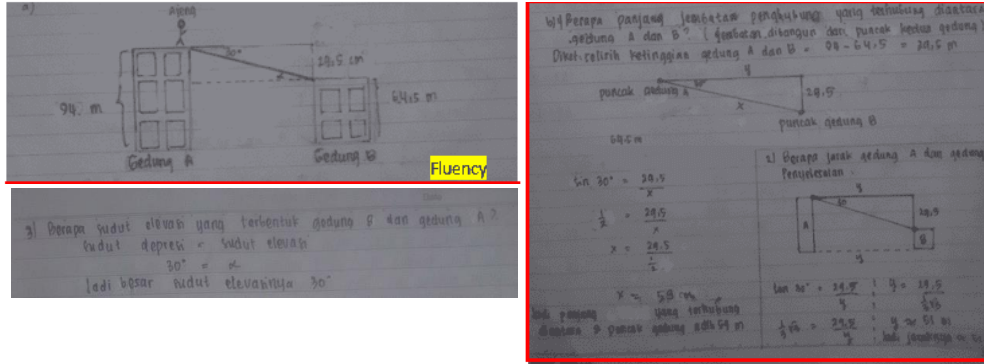 a)
Ajeng
30°
29.5 cm
α
94 m
64.5 m
Gedung A
Gedung B
Fluency
3) Berapa sudut elevasi yang terbentuk gedung B dan gedung A?
sudut depresi = sudut elevasi
30° = α
Jadi besar sudut elevasinya 30°
b) Berapa panjang jembatan penghubung yang terhubung diantara
gedung A dan B? (jembatan dibangun dari puncak kedua gedung)
Diket: selisih ketinggian gedung A dan B = 94 - 64.5 = 29,5 m
y
puncak gedung A
30°
29.5
x
puncak gedung B
64.5 m
sin 30° = 29.5 / x
1/2 = 29.5 / x
x = 29.5 / 1/2
x = 59 m
Jadi panjang yang terhubung
diantara 2 puncak gedung adlh 59 m
2) Berapa jarak gedung A dan gedung
Penyelesaian.
y
30
A
29.5
B
y
tan 30° = 29.5 / y ; y = 29.5 / 1/3 √3
1/3 √3 = 29.5 / y ; y ≈ 51 m
Jadi jaraknya ≈